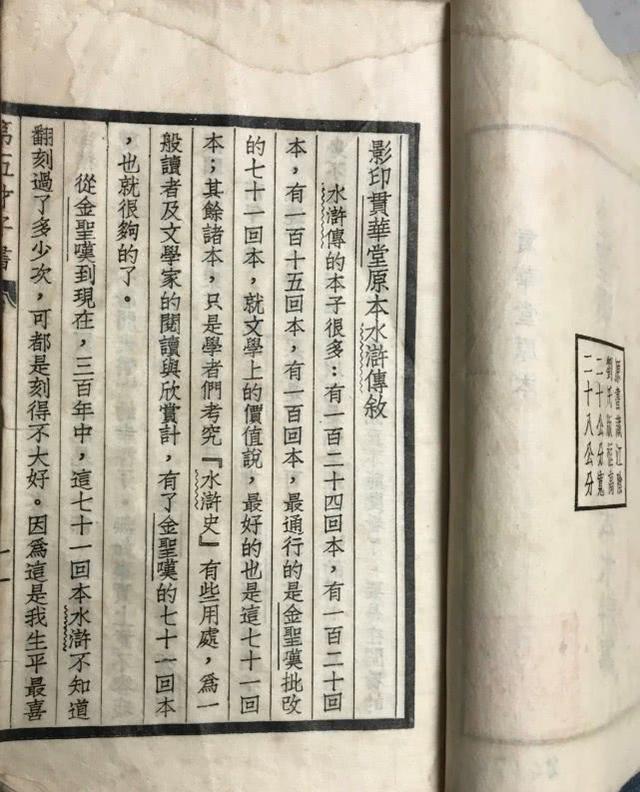 原書藏江陰
劉氏版框高
二十公分寬
二十八公分
影印貫華堂原本水滸傳敘
水滸傳的本子很多：有一百二十四回本，有一百二十回
本，有一百十五回本，有一百回本，最通行的是金聖嘆批改
的七十一回本，就文學上的價值說，最好的也是這七十一回
本；其餘諸本，只是學者們考究『水滸史』有些用處，爲一
般讀者及文學家的閱讀與欣賞計，有了金聖嘆的七十一回本
，也就很夠的了。
從金聖嘆到現在，三百年中，這七十一回本水滸不知道
翻刻過了多少次，可都是刻得不大好。因爲這是我生平最喜
第五才子書